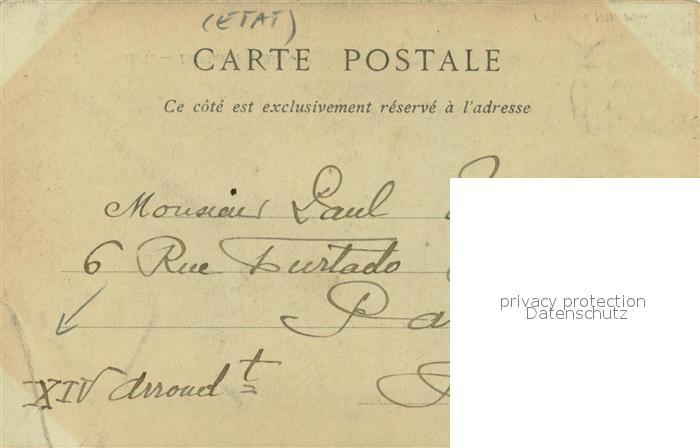 (ETAT)
CARTE POSTALE
Ce côté est exclusivement réservé à l'adresse
Monsieur Paul
6 Rue Furtado
Pa
XIV Arrond t
privacy protection
Datenschutz